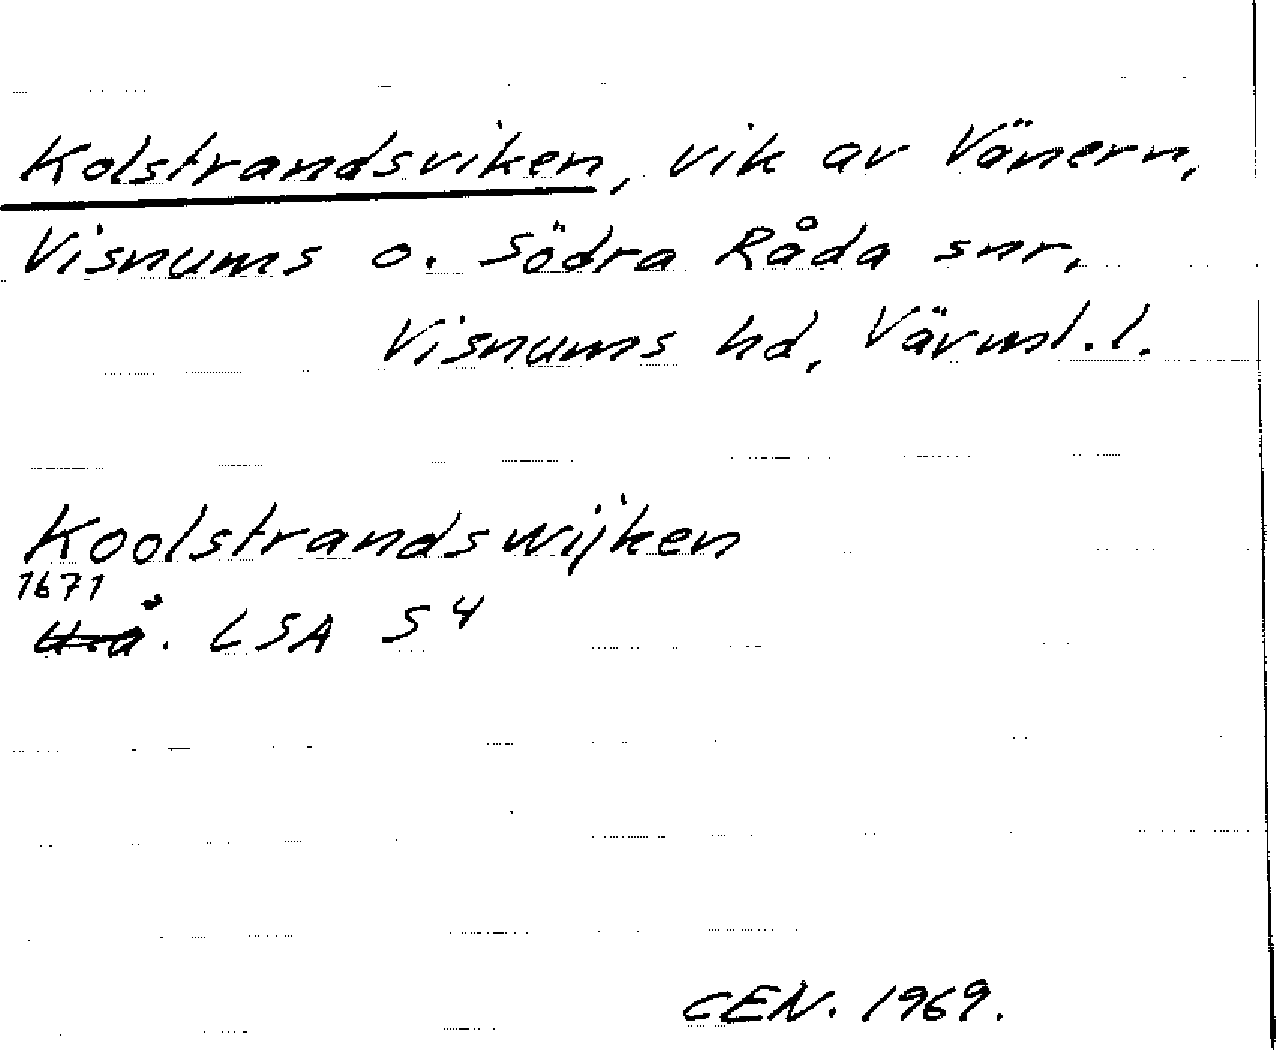 Kolstrandsviken, vik av Vänern,
Visnums o. Södra Råda snr,
Visnums hd, Värml. l.
Koolstrandswijken
1671
U.å. LSA S 4
CEN. 1969.